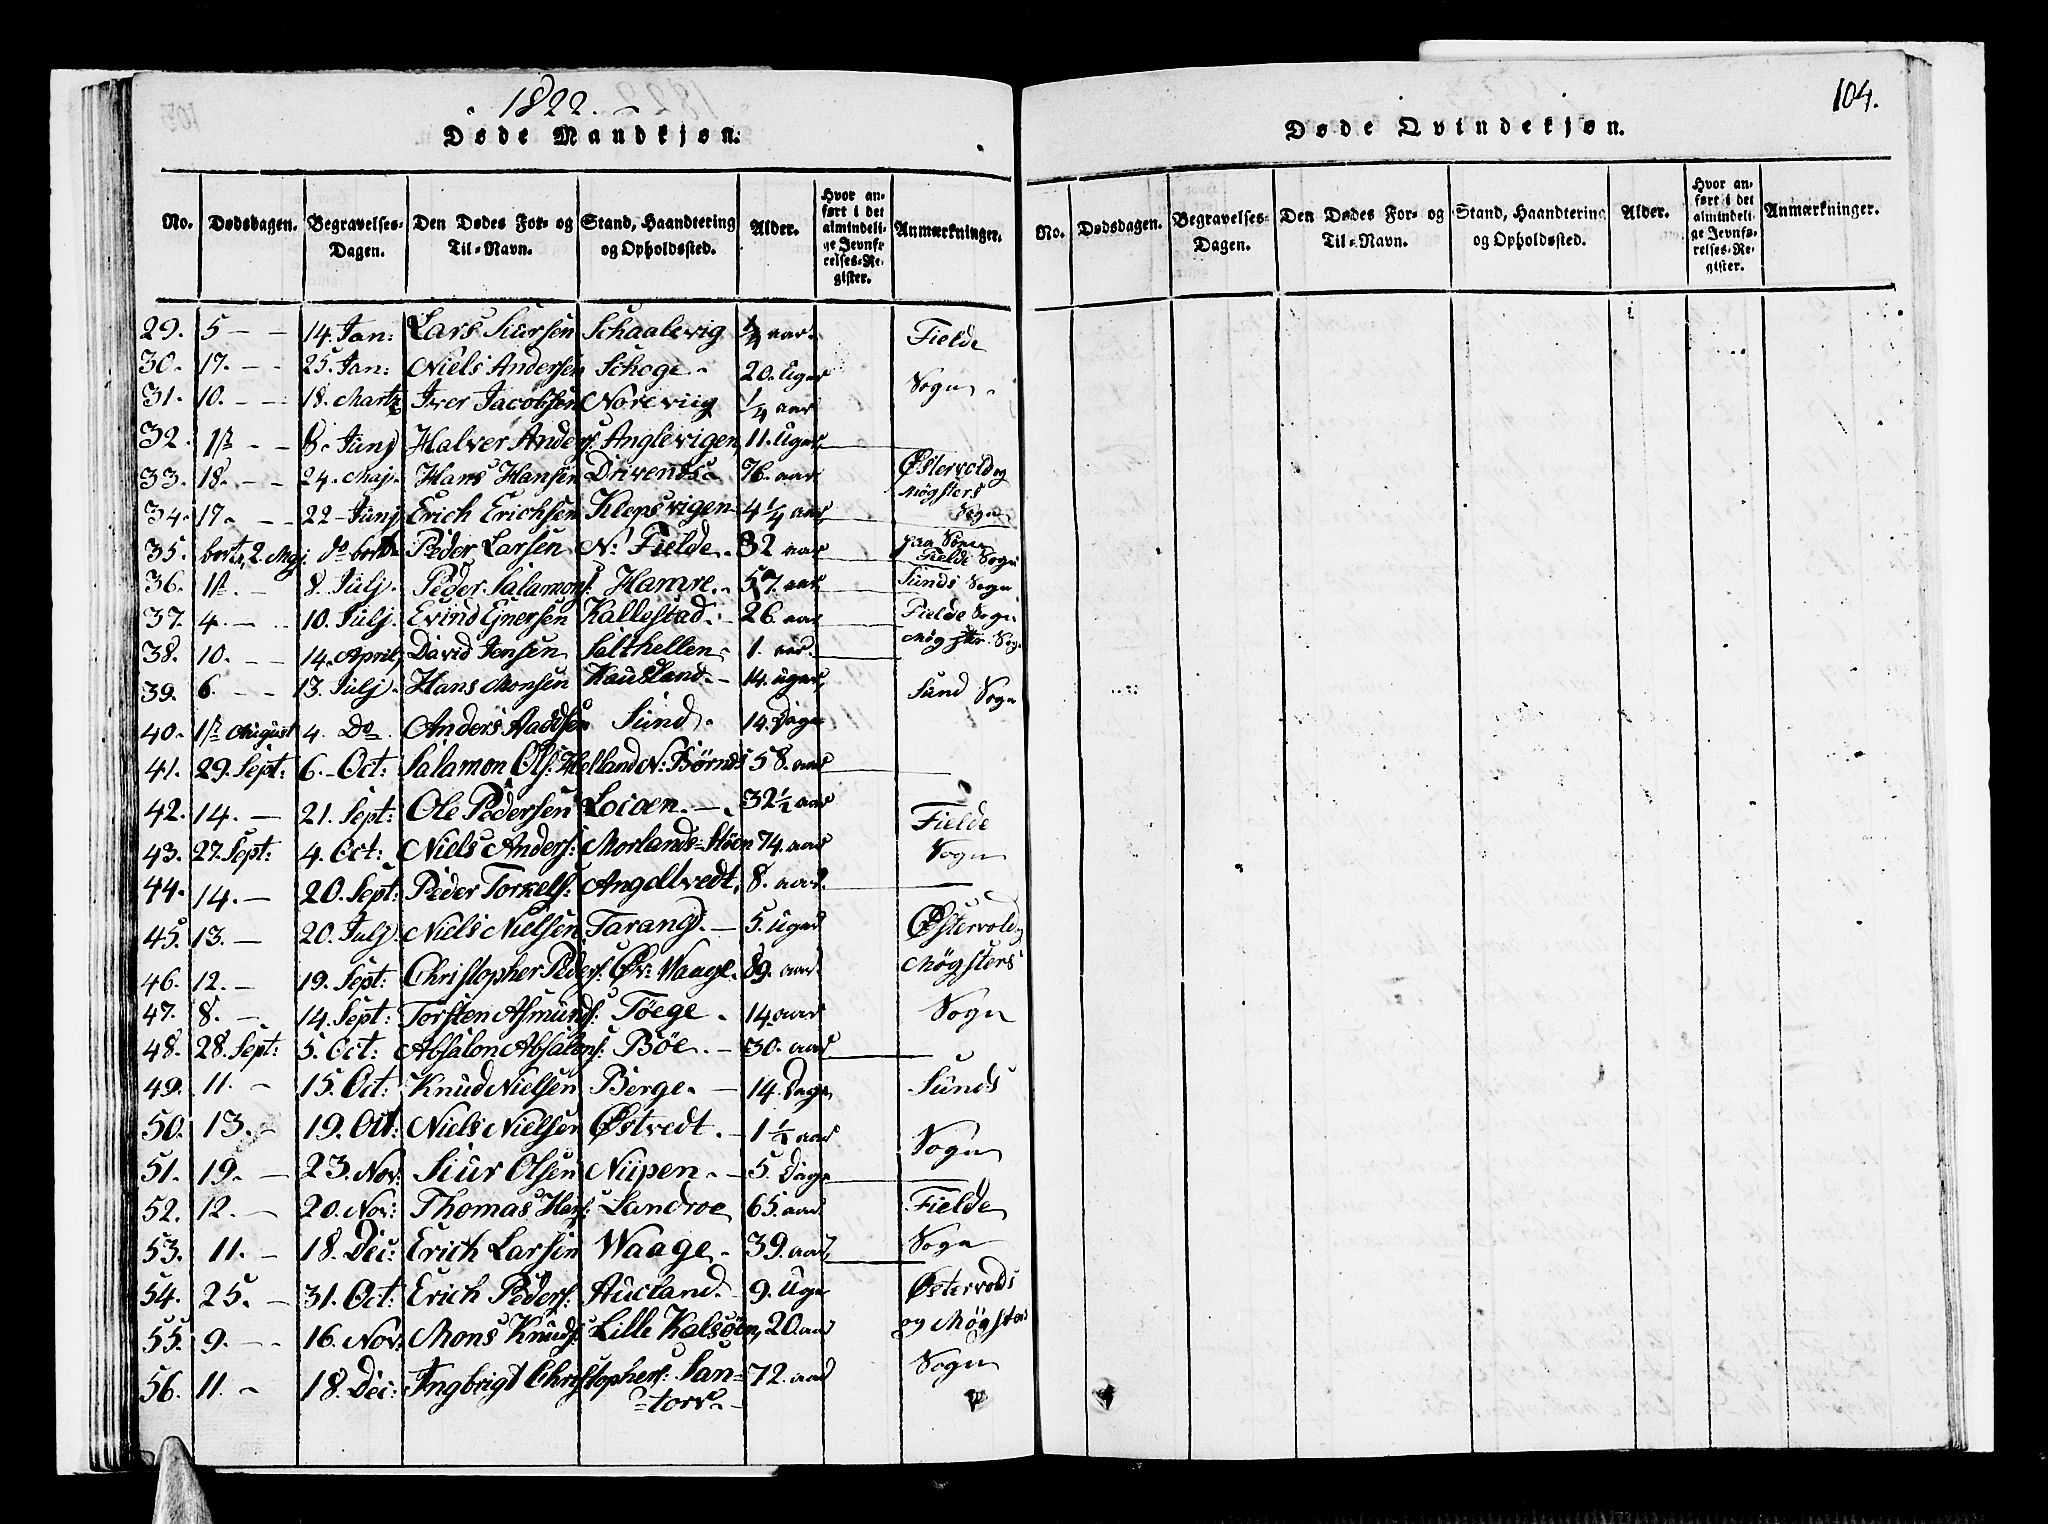 1822.
Døde Mandkjøn.
No. Dødsdagen. Begravelses-Dagen. Den Dødes For- og Til-Navn. Stand, Haandtering og Opholdssted. Alder. Hvor anført i det almindelige Jevnførelses-Register. Anmærkninger.
29. 5 - - 14. Jan: Lars Siursen Schaalevig 1/4 aar. Fielde
30. 17. - - 25. Jan: Niels Andersen Schoge. 20. Uger
31. 10. - - 18. Martz Iver Jacobsen Noreviig 1/4 aar Sogn
32. 1ste - - 8. Junj Halver Anders: Anglevigen, 11. Uger
33. 18. - - 24. Maj. Hans Hansen Drivenes 76. aar Østervold og
34. 17. - - 22. Junj Erich Erichsen Klepsvigen 4 1/4 aar Møgsters Sogn
35. bortk. 2. Maj. do bortk. Peder Larsen N: Fielde. 32 aar paa Søen Fielde Sogn
36. 1ste - 8. Julj. Peder Salamons: Hamre. 57. aar Sunds Sogn
37. 4. - - 10. Julj. Evind Ejnersen Kallestad. 26. aar Fielde Sogn
38. 10. - - 14. April, David Jensen Salthellen 1. aar. Møgster Sogn
39. 6. - - 13. Julj. Hans Monsen Kausland. 14. uger, Sund Sogn
40. 1ste August 4. Do Anders Aadsen Sund. 14. Dage
41. 29. Sept: 6. Oct: Salamon Ols: Holland N: Børnes 58. aar
42. 14. - 21. Sept: Ole Pedersen Loioen. 32 1/2 aar Fielde
43. 27. Sept: 4. Oct: Niels Anders: Morlands-Støen 74. aar Sogn
44. 14. - 20. Sept: Peder Torkels: Angeltvedt, 8. aar.
45. 13. - 20. Julj. Niels Nielsen Tarang. 5. Uger Østervold og
46. 12. - 19. Sept: Christopher Peders: Ør: Waage. 89. aar. Møgsters
47. 8. - 14. Sept: Torsten Asmunds: Töege. 14 aar Sogn
48. 28. Sept: 5. Oct: Absalon Absalons: Böe. 30. aar
49. 11. - 15. Oct: Knud Nielsen Berge. 14. Dage, Sunds
50. 13. - 19. Oct: Niels Nielsen Østvedt. 1 1/2 aar
51. 19. - 23. Nov: Siur Olsen Niipen. 5. Dage Sogn
52. 12. - 20. Nov: Thomas Hans: Sandroe 65. aar Fielde
53. 11. - 18. Dec: Erich Larsen Waage. 39. aar, Sogn
54. 25. - 31. Oct: Erich Peders: Aucland. 9. Uger Østervolds
55. 9. - 16. Nov: Mons Knuds: Lille Kalsöen, 20. aar og Møgsters
56. 11. - 18. Dec: Ingbrigt Christophers: San=torv. 72. aar Sogn
104.
Døde Qvindekjøn.
No. Dødsdagen. Begravelses-Dagen. Den Dødes For- og Til-Navn. Stand, Haandtering og Opholdssted. Alder. Hvor anført i det almindelige Jevnførelses-Register. Anmærkninger.